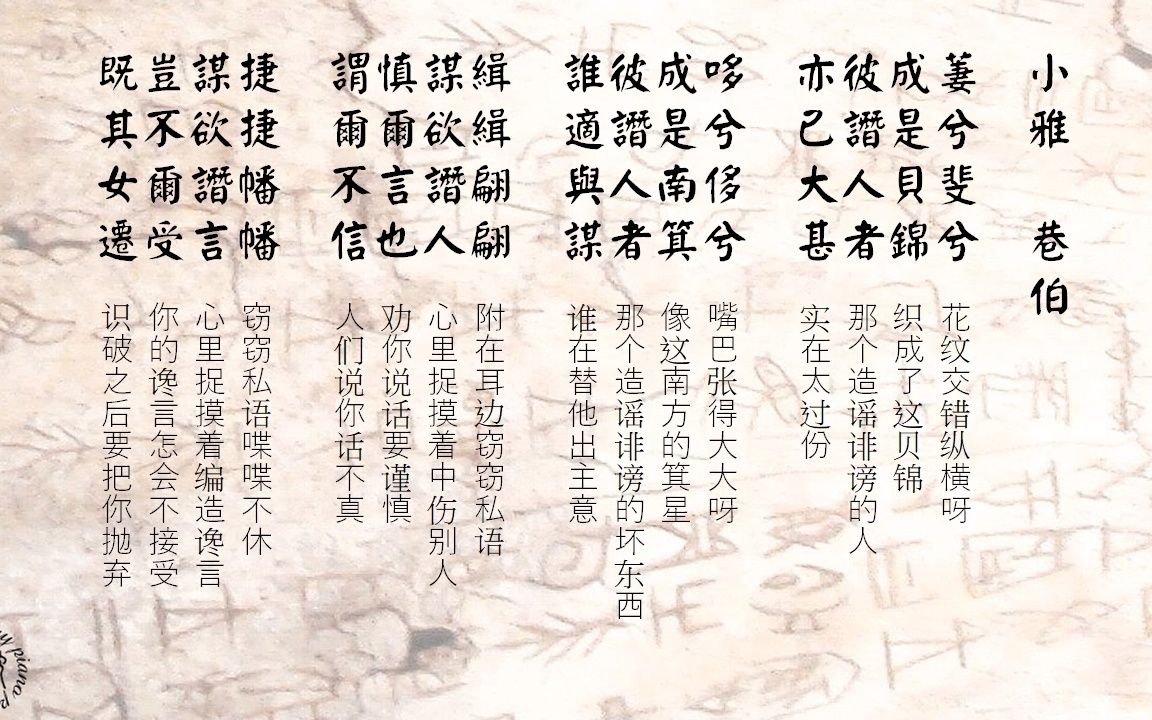 小雅 巷伯
萋兮斐兮
成是貝錦
彼譖人者
亦已大甚
花纹交错纵横呀
织成了这贝锦
那个造谣诽谤的人
实在太过份
哆兮侈兮
成是南箕
彼譖人者
誰適與謀
嘴巴张得大大呀
像这南方的箕星
那个造谣诽谤的坏东西
谁在替他出主意
緝緝翩翩
謀欲譖人
慎爾言也
謂爾不信
附在耳边窃窃私语
心里捉摸着中伤别人
劝你说话要谨慎
人们说你话不真
捷捷幡幡
謀欲譖言
豈不爾受
既其女遷
窃窃私语喋喋不休
心里捉摸着编造谗言
你的谗言怎会不接受
识破之后要把你抛弃
piano